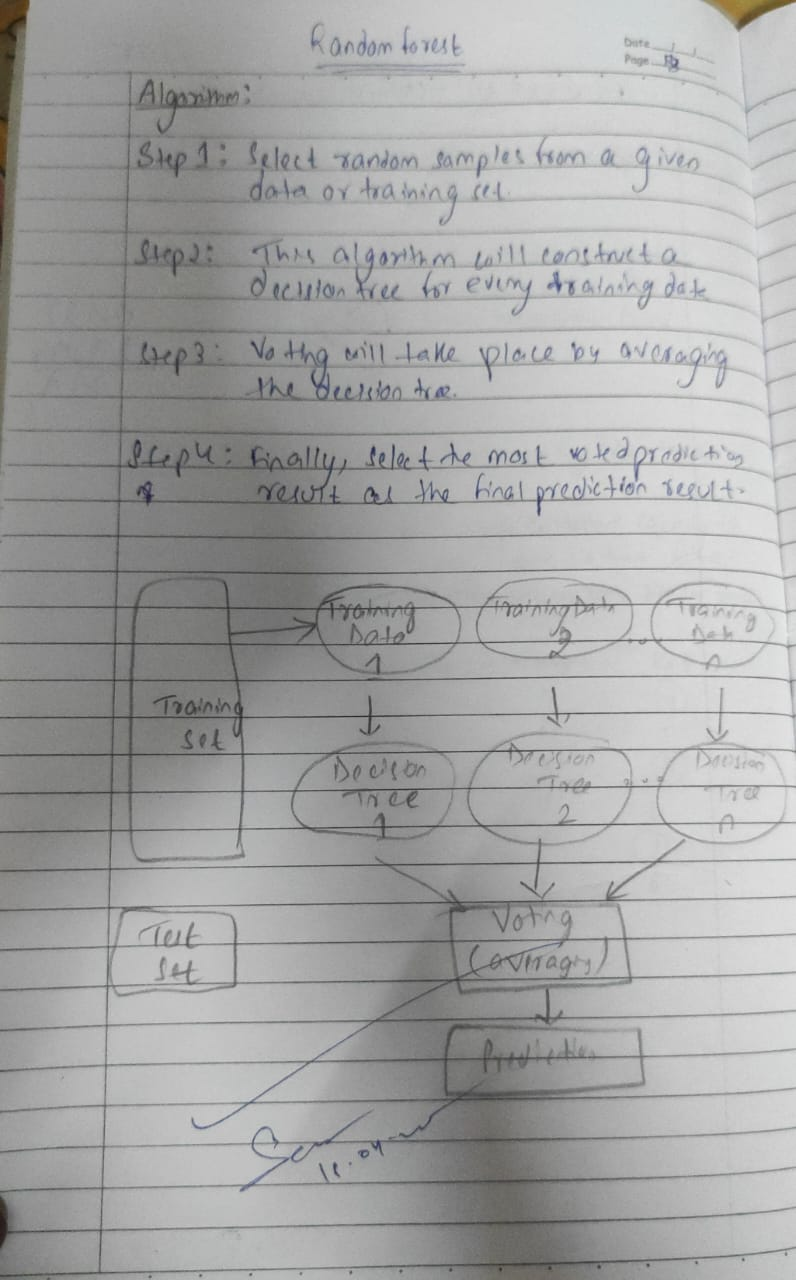 Random forest
Date
Page
Algorithm:
Step 1: Select random samples from a given
data or training set.
Step 2: This algorithm will construct a
decision tree for every training data
Step 3: Voting will take place by averaging
the decision tree.
Step 4: Finally, select the most voted prediction
result as the final prediction result.
Training
Data
1
Training Data
2
...
Training
Data
n
Training
set
Decision
Tree
1
Decision
Tree
2
...
Decision
Tree
n
Test
set
Voting
(averaging)
Prediction